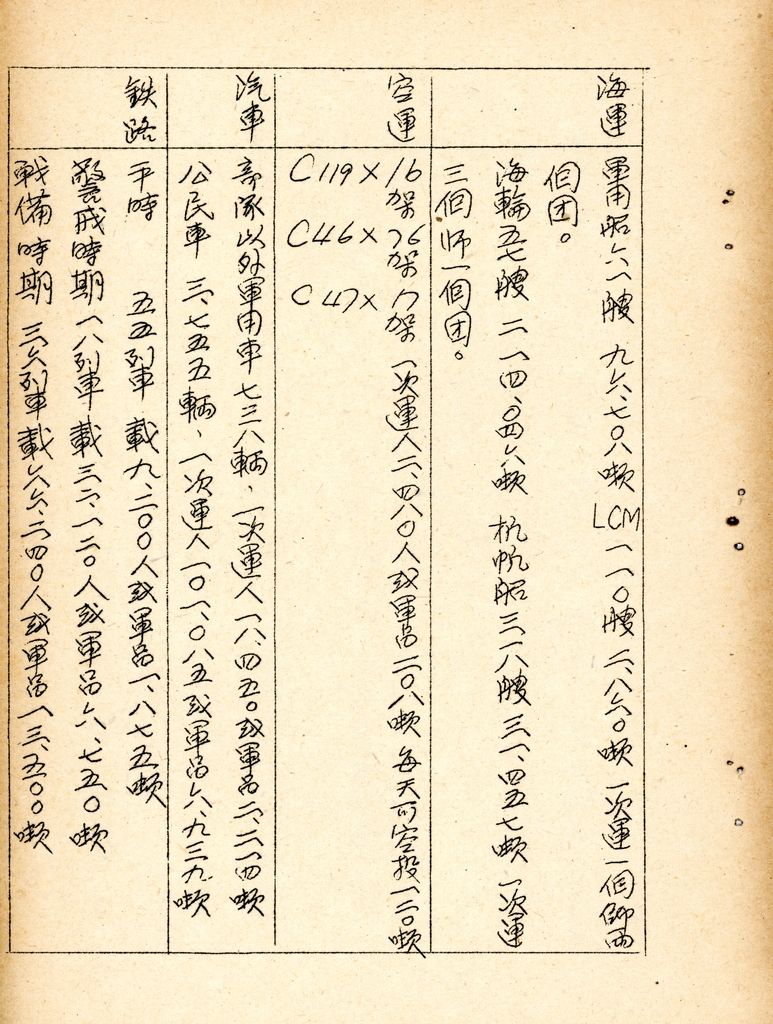 海運
軍用船六一艘 九六、七〇八噸 LCM 一一〇艘 二、八六〇噸 一次運一個師兩
個团。
海輪五七艘 二一四、〇四六噸 机帆船三一八艘 三一、四五七噸 一次運
三個師一個团。
空運
C119×16架 C46×76架 C47×17架 一次運人二、四八〇人或軍品二〇八噸 每天可空投一二〇噸
汽車
部隊以外軍用車七三八輛、一次運人一八、四五〇或軍品二、二一四噸
公民車 三、七五五輛、一次運人一〇一、〇八五或軍品六、九三九噸
鉄路
平時 五五列車 載九、二〇〇人或軍品一、八七五噸
警戒時期 一八列車 載三二、一二〇人或軍品六、七五〇噸
戦備時期 三六列車載六六、二四〇人或軍品一三、五〇〇噸